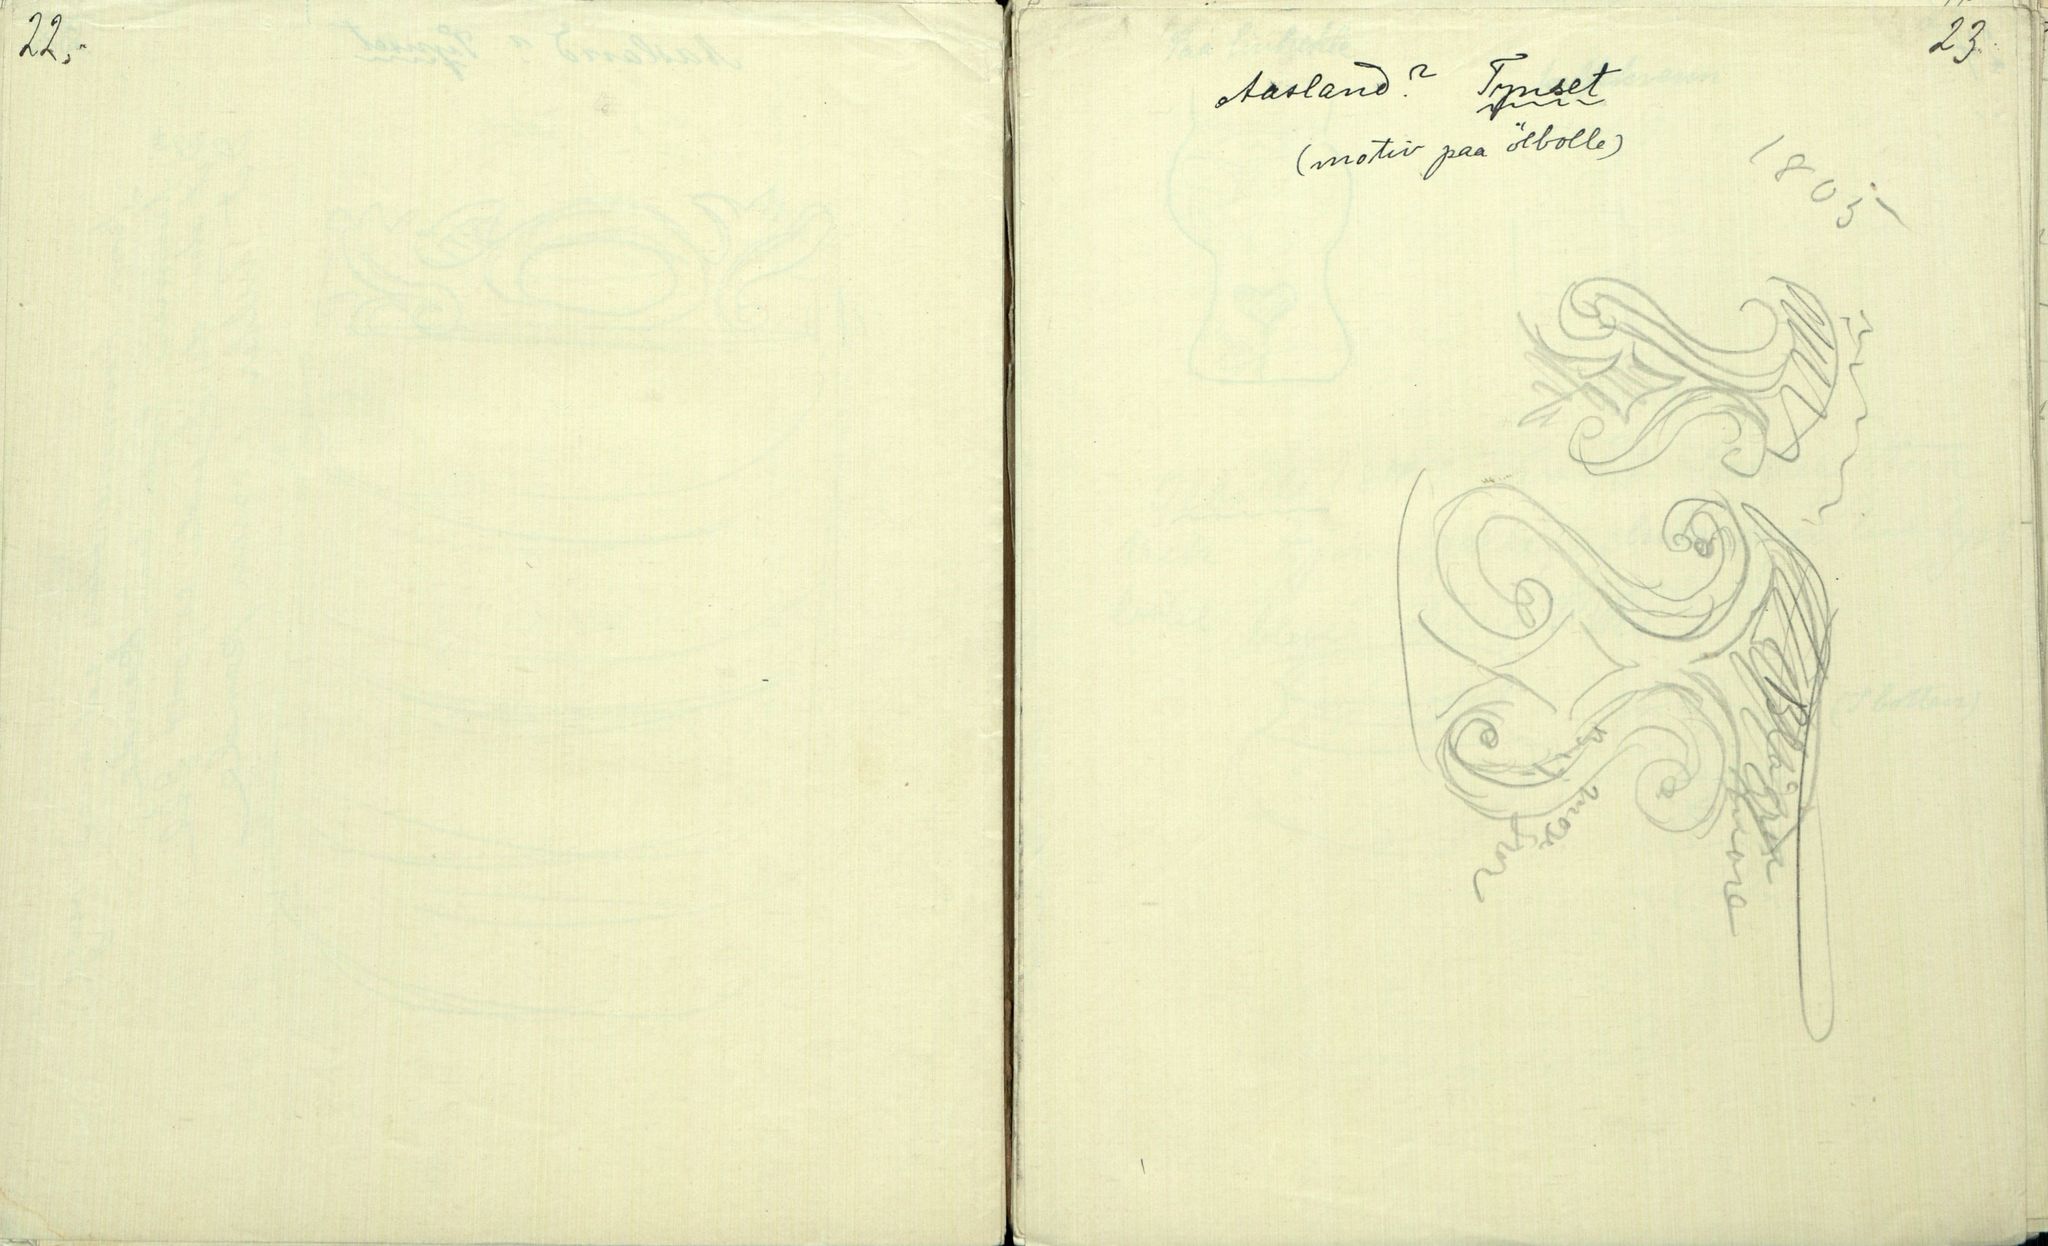 22.
23.
Aasland? Tynset
(motiv paa ölbolle)
1805
Blå grøn